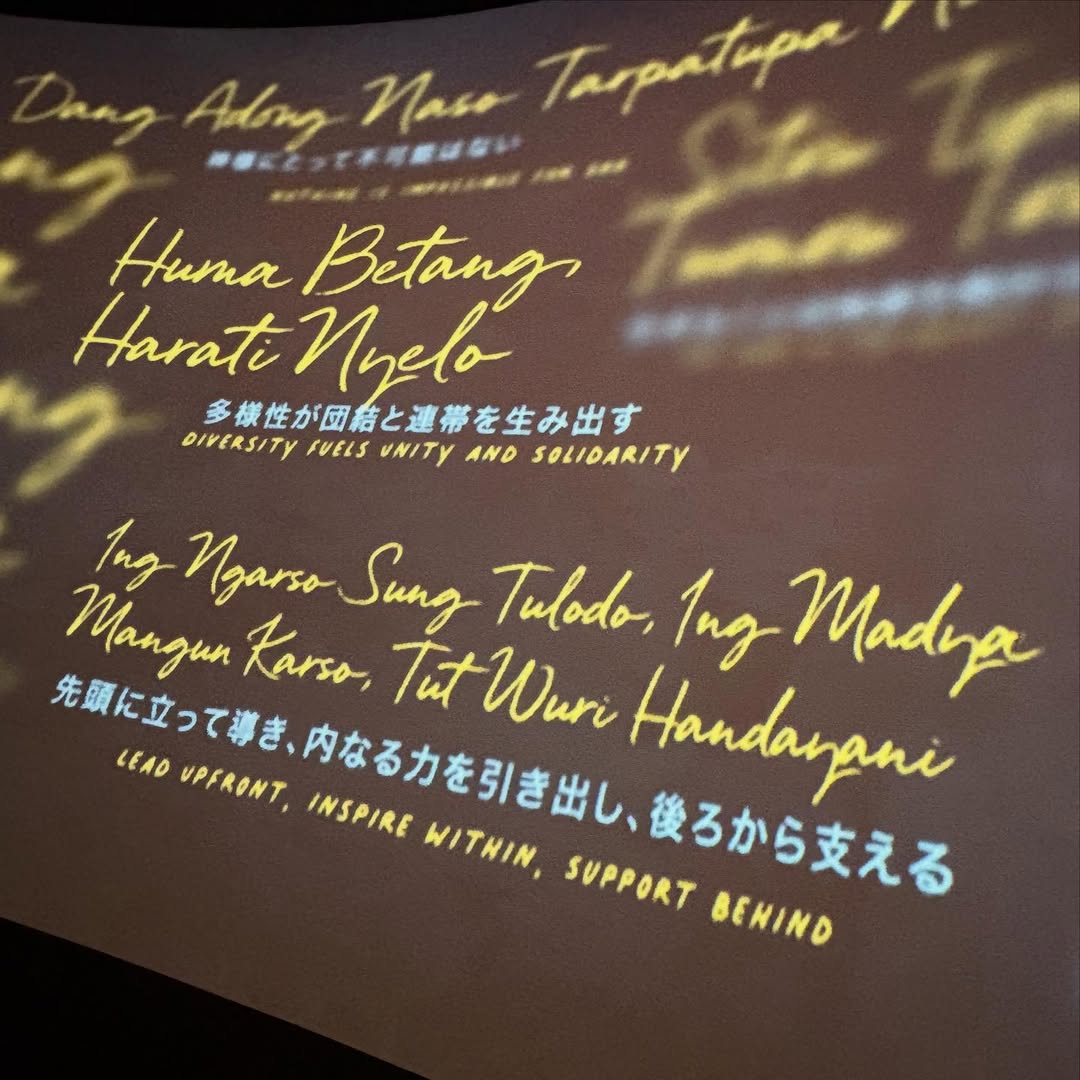 Dang Adong Naso Tarpatupa
神様にとって不可能はない
NOTHING IS IMPOSSIBLE FOR GOD
Huma Betang,
Harati Nyelo
多様性が団結と連帯を生み出す
DIVERSITY FUELS UNITY AND SOLIDARITY
Ing Ngarso Sung Tulodo, Ing Madya
Mangun Karso, Tut Wuri Handayani
先頭に立って導き、内なる力を引き出し、後ろから支える
LEAD UPFRONT, INSPIRE WITHIN, SUPPORT BEHIND